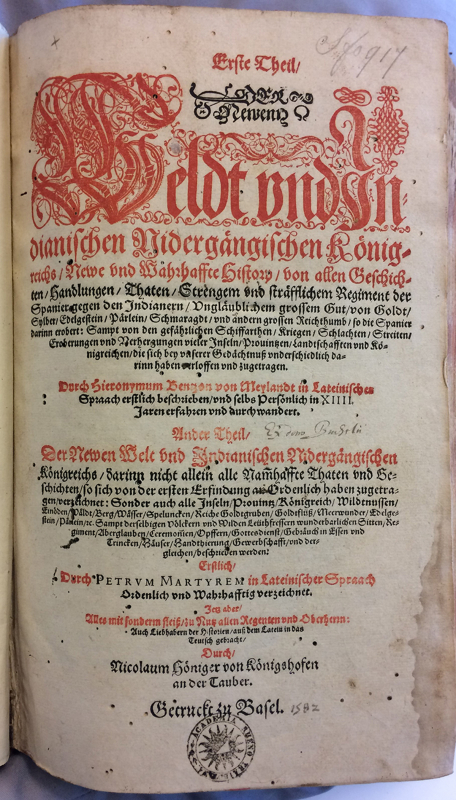 Erste Theil/
DER
Newenn
Weldt vnd In-
dianischen Nidergängischen König-
reichs/ Newe vnd Wahrhaffte History/ von allen Geschich-
ten/ Handlungen/ Thaten/ Strengem vnd sträfflichem Regiment der
Spanier gegen den Indianern/ Vngläublichem grossem Gut/ von Goldt/
Sylber/ Edelgestein/ Pärlein/ Schmaragdt/ vnd andern grossen Reichthumb/ so die Spanier
darinn erobert: Sampt von den gefährlichen Schiffarthen/ Kriegen/ Schlachten/ Streiten/
Eroberungen vnd Verhergungen vieler Inseln/ Prouintzen/ Landtschafften vnd Kö-
nigreichen/ die sich bey vnserer Gedächtnuß vnderschidlich da-
rinn haben verloffen vnd zugetragen.
Durch Hieronymum Bentzon von Meylandt in Lateinischer
Spraach erstlich beschrieben/ vnd selbs Persönlich in XIIII.
Jaren erfahren vnd durchwandert.
Ander Theil/
Der Newen Welt vnd Indianischen Nidergängischen
Königreichs/ darinn nicht allein alle Nam̄haffte Thaten vnd Ge-
schichten/ so sich von der ersten Erfindung an Ordenlich haben zugetra-
gen/ verzeichnet: Sonder auch alle Inseln/ Prouintz/ Königreich/ Wildtnussen/
Einöden/ Wäldt/ Berg/ Wässer/ Speluncken/ Reiche Goldtgruben/ Goldtflüß/ Meerwunder/ Edelge-
stein/ Pärlein/ ꝛc. Sampt derselbigen Völckern vnd Wilden Leüthfressern wunderbarlichen Sitten/ Re-
giment/ Aberglauben/ Ceremonien/ Opffern/ Gottesdienst/ Gebräuch in Essen vnd
Trincken/ Häuser/ Handthierung/ Gewerbschafft/ vnd der-
gleichen/ beschrieben werden:
Erstlich/
Durch PETRVM MARTYREM in Lateinischer Spraach
Ordenlich vnd Wahrhafftig verzeichnet.
Jetz aber/
Alles mit sonderm fleiß/ zu Nutz allen Regenten vnd Oberherrn:
Auch Liebhabern der Historien/ auß dem Latein in das
Teutsch gebracht/
Durch/
Nicolaum Höniger von Königshofen
an der Tauber.
Getruckt zu Basel. 1582